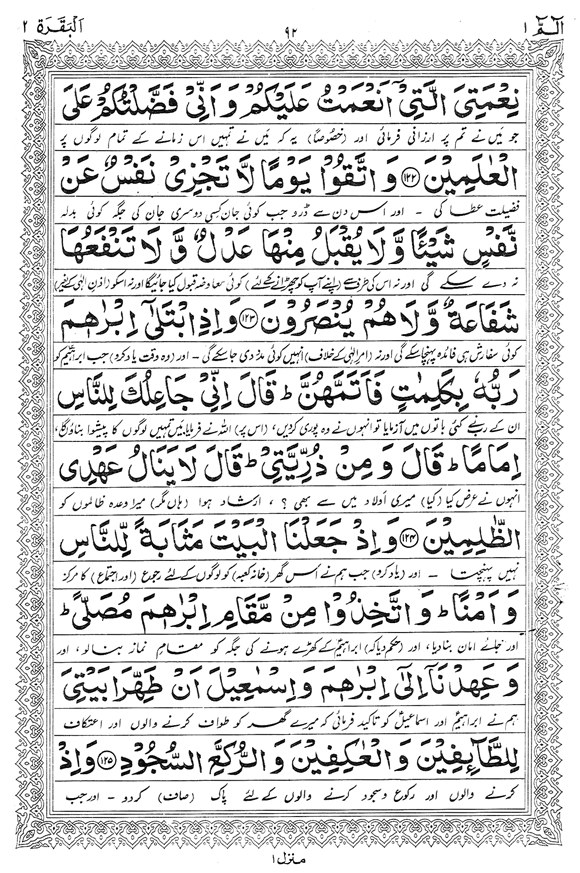 الٓمّٓ ١
٩٢
اَلْبَقَرَة ٢
نِعْمَتِیَ الَّتِیْۤ اَنْعَمْتُ عَلَیْكُمْ وَ اَنِّیْ فَضَّلْتُكُمْ عَلَی
جو میں نے تم پر ارزانی فرمائی اور (خصوصاً) یہ کہ میں نے تمہیں اس زمانے کے تمام لوگوں پر
الْعٰلَمِیْنَ ﴿١٢٢﴾ وَ اتَّقُوْا یَوْمًا لَّا تَجْزِیْ نَفْسٌ عَنْ
فضیلت عطا کی ۔ اور اس دن سے ڈرو جب کوئی جان کسی دوسری جان کی جگہ کوئی بدلہ
نَّفْسٍ شَیْـًٔا وَّ لَا یُقْبَلُ مِنْهَا عَدْلٌ وَّ لَا تَنْفَعُهَا
نہ دے سکے گی اور نہ اس کی طرف سے (اپنے آپ کو چھڑانے کیلئے) کوئی معاوضہ قبول کیا جائیگا اور نہ اسکو (اذنِ الٰہی کے بغیر)
شَفَاعَةٌ وَّ لَا هُمْ یُنْصَرُوْنَ ﴿١٢٣﴾ وَ اِذِ ابْتَلٰۤی اِبْرٰهٖمَ
کوئی سفارش ہی فائدہ پہنچا سکے گی اور نہ (امرِ الٰہی کے خلاف) انہیں کوئی مدد دی جا سکے گی ۔ اور (وہ وقت یاد کرو) جب ابراہیمؑ کو
رَبُّهٗ بِكَلِمٰتٍ فَاَتَمَّهُنَّ ؕ قَالَ اِنِّیْ جَاعِلُكَ لِلنَّاسِ
ان کے رب نے کئی باتوں میں آزمایا تو انہوں نے وہ پوری کر دیں، (اس پر) اللہ نے فرمایا: میں تمہیں لوگوں کا پیشوا بناؤں گا،
اِمَامًا ؕ قَالَ وَ مِنْ ذُرِّیَّتِیْ ؕ قَالَ لَا یَنَالُ عَهْدِی
انہوں نے عرض کیا: (کیا) میری اولاد میں سے بھی ؟ ، ارشاد ہوا (ہاں مگر) میرا وعدہ ظالموں کو
الظّٰلِمِیْنَ ﴿١٢٤﴾ وَ اِذْ جَعَلْنَا الْبَیْتَ مَثَابَةً لِّلنَّاسِ
نہیں پہنچتا ۔ اور (یاد کرو) جب ہم نے اس گھر (خانہ کعبہ) کو لوگوں کے لئے رجوع (اور اجتماع) کا مرکز
وَ اَمْنًا ؕ وَ اتَّخِذُوْا مِنْ مَّقَامِ اِبْرٰهٖمَ مُصَلًّی ؕ
اور جائے امان بنا دیا، اور (حکم دیا کہ) ابراہیمؑ کے کھڑے ہونے کی جگہ کو مقامِ نماز بنا لو ، اور
وَ عَهِدْنَاۤ اِلٰۤی اِبْرٰهٖمَ وَ اِسْمٰعِیْلَ اَنْ طَهِّرَا بَیْتِیَ
ہم نے ابراہیمؑ اور اسماعیلؑ کو تاکید فرمائی کہ میرے گھر کو طواف کرنے والوں اور اعتکاف
لِلطَّآىِٕفِیْنَ وَ الْعٰكِفِیْنَ وَ الرُّكَّعِ السُّجُوْدِ ﴿١٢٥﴾ وَ اِذْ
کرنے والوں اور رکوع و سجود کرنے والوں کے لئے پاک (صاف) کر دو ۔ اور جب
منزل ١